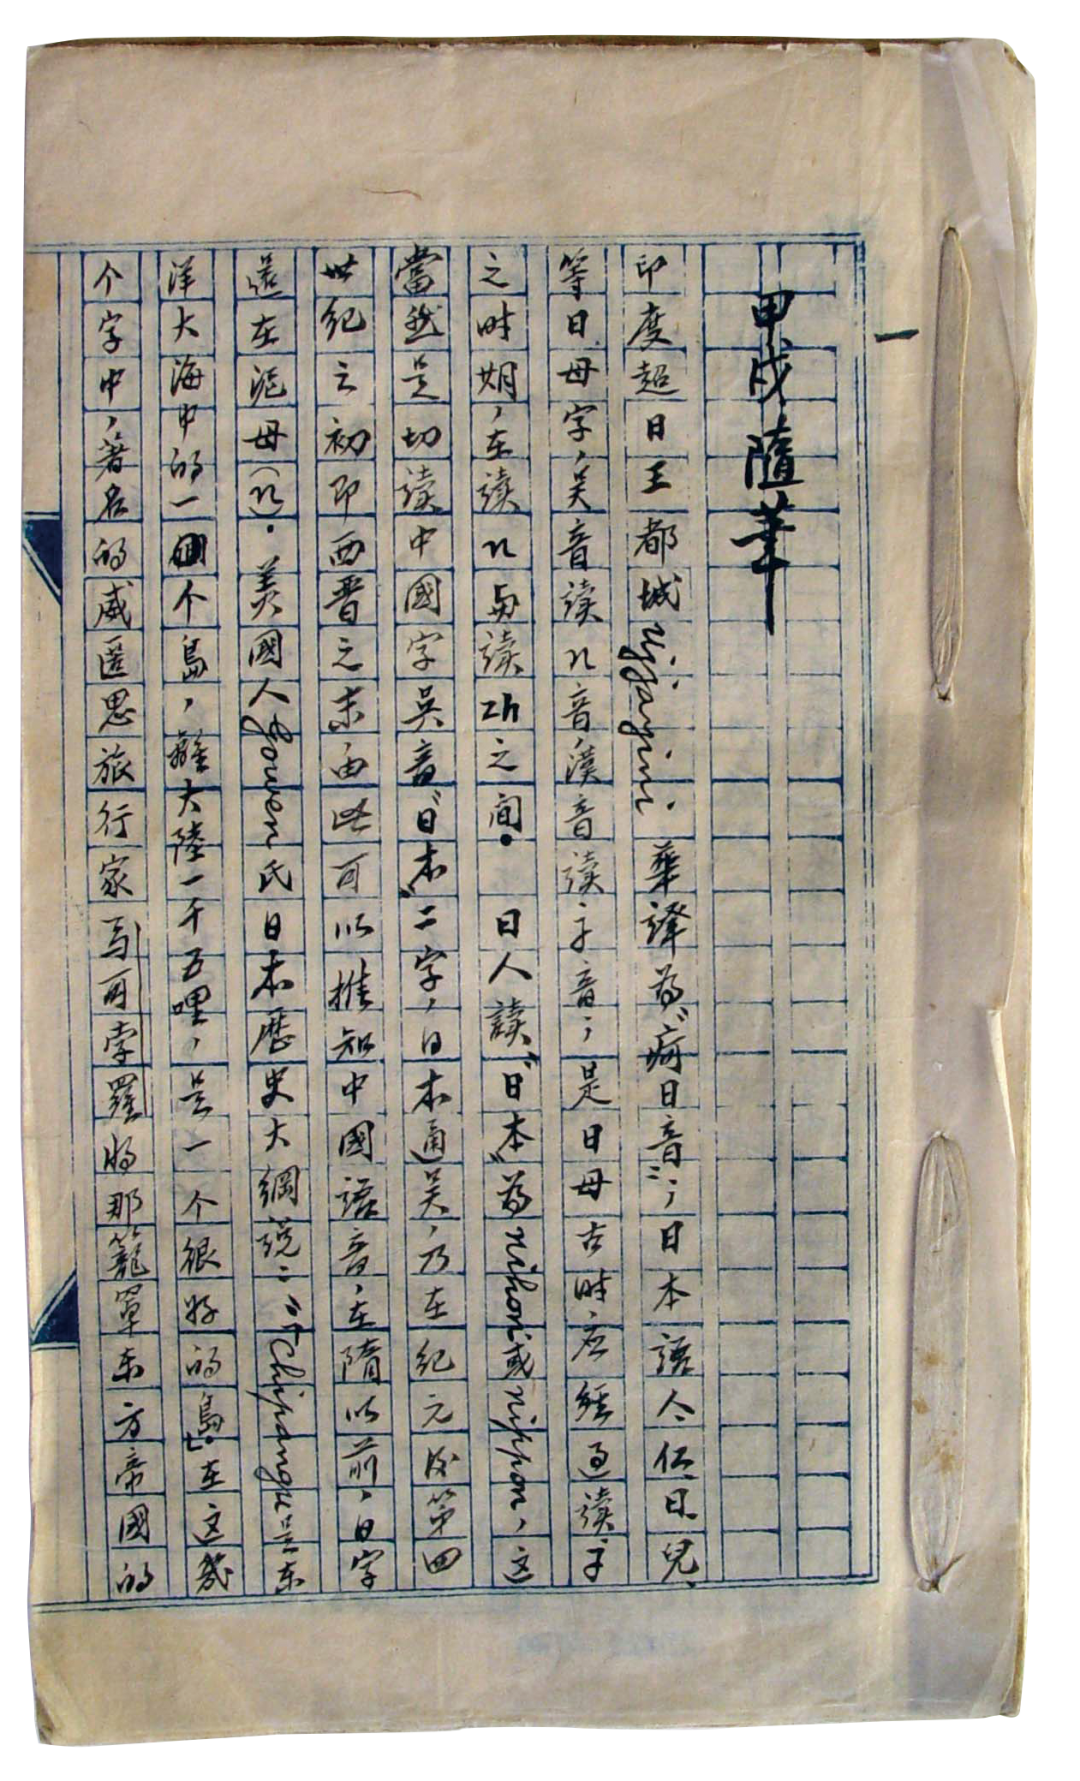 一
甲戌隨筆
印度超日王都城Ujjayini.華譯為“痏日音”;日本語人、仁、日、兒、
等日母字,吳音讀n音,漢音讀ㄗ音,是日母古時,应經過读ㄗ
之时期,在读n与读zh之间. 日人讀“日本”為nihon或nippon,这
當然是切读中國字吳音“日本”二字,日本通吴,乃在紀元後第四
世紀之初即西晋之末,由此可以推知中國語音,在隋以前,日字
還在泥母(n).美國人Gowen氏日本歷史大綱说:“Chipangu是东
洋大海中的一个島,離大陸一千五哩,是一个很好的島.」在这幾
个字中,著名的威匿思旅行家馬可孛羅將那籠罩东方帝國的